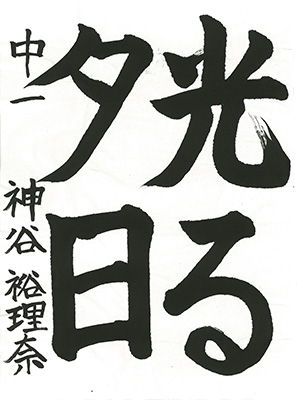 光る
夕日
中一 神谷 裕理奈